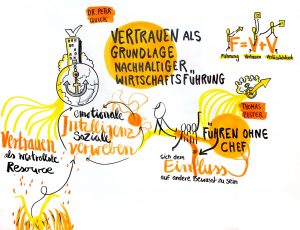 DR. PETER
QUICK
VERTRAUEN ALS
GRUNDLAGE
NACHHALTIGER
WIRTSCHAFTSFÜHRUNG
F=V+V
Führung Vertrauen
emotionale
Intelligenz
soziale
vorweben
Vertrauen
als wertvolle
Resource
THOMAS
FÜHREN OHNE
CHEF
sich dem
Einfluss
auf andere bewusst zu sein